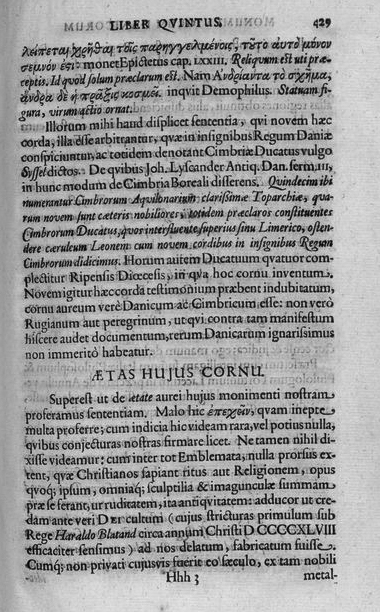 LIBER QVINTUS. 429
λείπεται χρῆσθαι τοῖς παρηγγελμένοις, τῦτο αυτὸ μόνον
σεμνόν ἐστι: monet Epictetus cap. LXXIII. Reliqvum est uti præ-
ceptis. Id qvod solum præclarum est. Nam Ἀνδριάντα τὸ σχῆμα,
ἄνδρα δὲ ἡ πρᾶξις κοσμεῖ. inqvit Demophilus. Statuam fi-
gura, virum actio ornat.
Illorum mihi haud displicet sententia, qvi novem hæc
corda, illa esse arbitrantur, qvæ in insignibus Regum Daniæ
conspiciuntur, ac totidem denotant Cimbriæ Ducatus vulgo
Syssel dictos. De qvibus Joh. Lyscander Antiq. Dan. serm. III,
in hunc modum de Cimbria Boreali disserens. Qvindecim ibi
numerantur Cimbrorum Aqvilonarium clarissimæ Toparchiæ, qva-
rum novem sunt cæteris nobiliores, totidem præclaros constituentes
Cimbrorum Ducatus, qvos interfluente superius sinu Limerico, osten-
dere cæruleum Leonem cum novem cordibus in insignibus Regum
Cimbrorum didicimus. Horum autem Ducatuum qvatuor com-
plectitur Ripensis Diœcesis, in qva hoc cornu inventum.
Novem igitur hæc corda testimonium præbent indubitatum,
cornu aureum verè Danicum ac Cimbricum esse: non verò
Rugianum aut peregrinum, ut qvi contra tam manifestum
hiscere audet documentum, rerum Danicarum ignarissimus
non immeritò habeatur.
ÆTAS HUJUS CORNU.
Superest ut de ætate aurei hujus monimenti nostram
proferamus sententiam. Malo hic ἐπεχεῖν, qvam inepte
multa proferre; cum indicia hic videam rara, vel potius nulla,
qvibus conjecturas nostras firmare licet. Ne tamen nihil di-
xisse videamur: cum inter tot Emblemata, nulla prorsus ex-
tent, qvæ Christianos sapiant ritus aut Religionem, opus
qvoq; ipsum, omniaq; sculptilia & imagunculæ summam
præ se ferant, ut ruditatem, ita antiqvitatem: adducor ut cre-
dam ante veri DEI cultum (cujus stricturas primulum sub
Rege Haraldo Blatand circa annum Christi DCCCCXLVIII
efficaciter sensimus) ad nos delatum, fabricatum fuisse.
Cumq; non privati cujusvis fuerit eo sæculo, ex tam nobili
Hhh 3 metal-